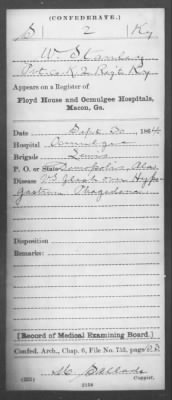 (CONFEDERATE.)
S 2 Ky
W. S.
Appears on a Register of
Floyd House and Ocmulgee Hospitals,
Macon, Ga.
Date Sept 30, 1864
Hospital Ocmulgee
Brigade Lewis
P. O. or State Demopolis, Ala
Disease V.S. flesh over Hypo-
gastrium Phagedena
Disposition
Remarks:
[Record of Medical Examining Board.]
Confed. Arch., Chap. 6, File No. 753, page
Ballard
Copyist.